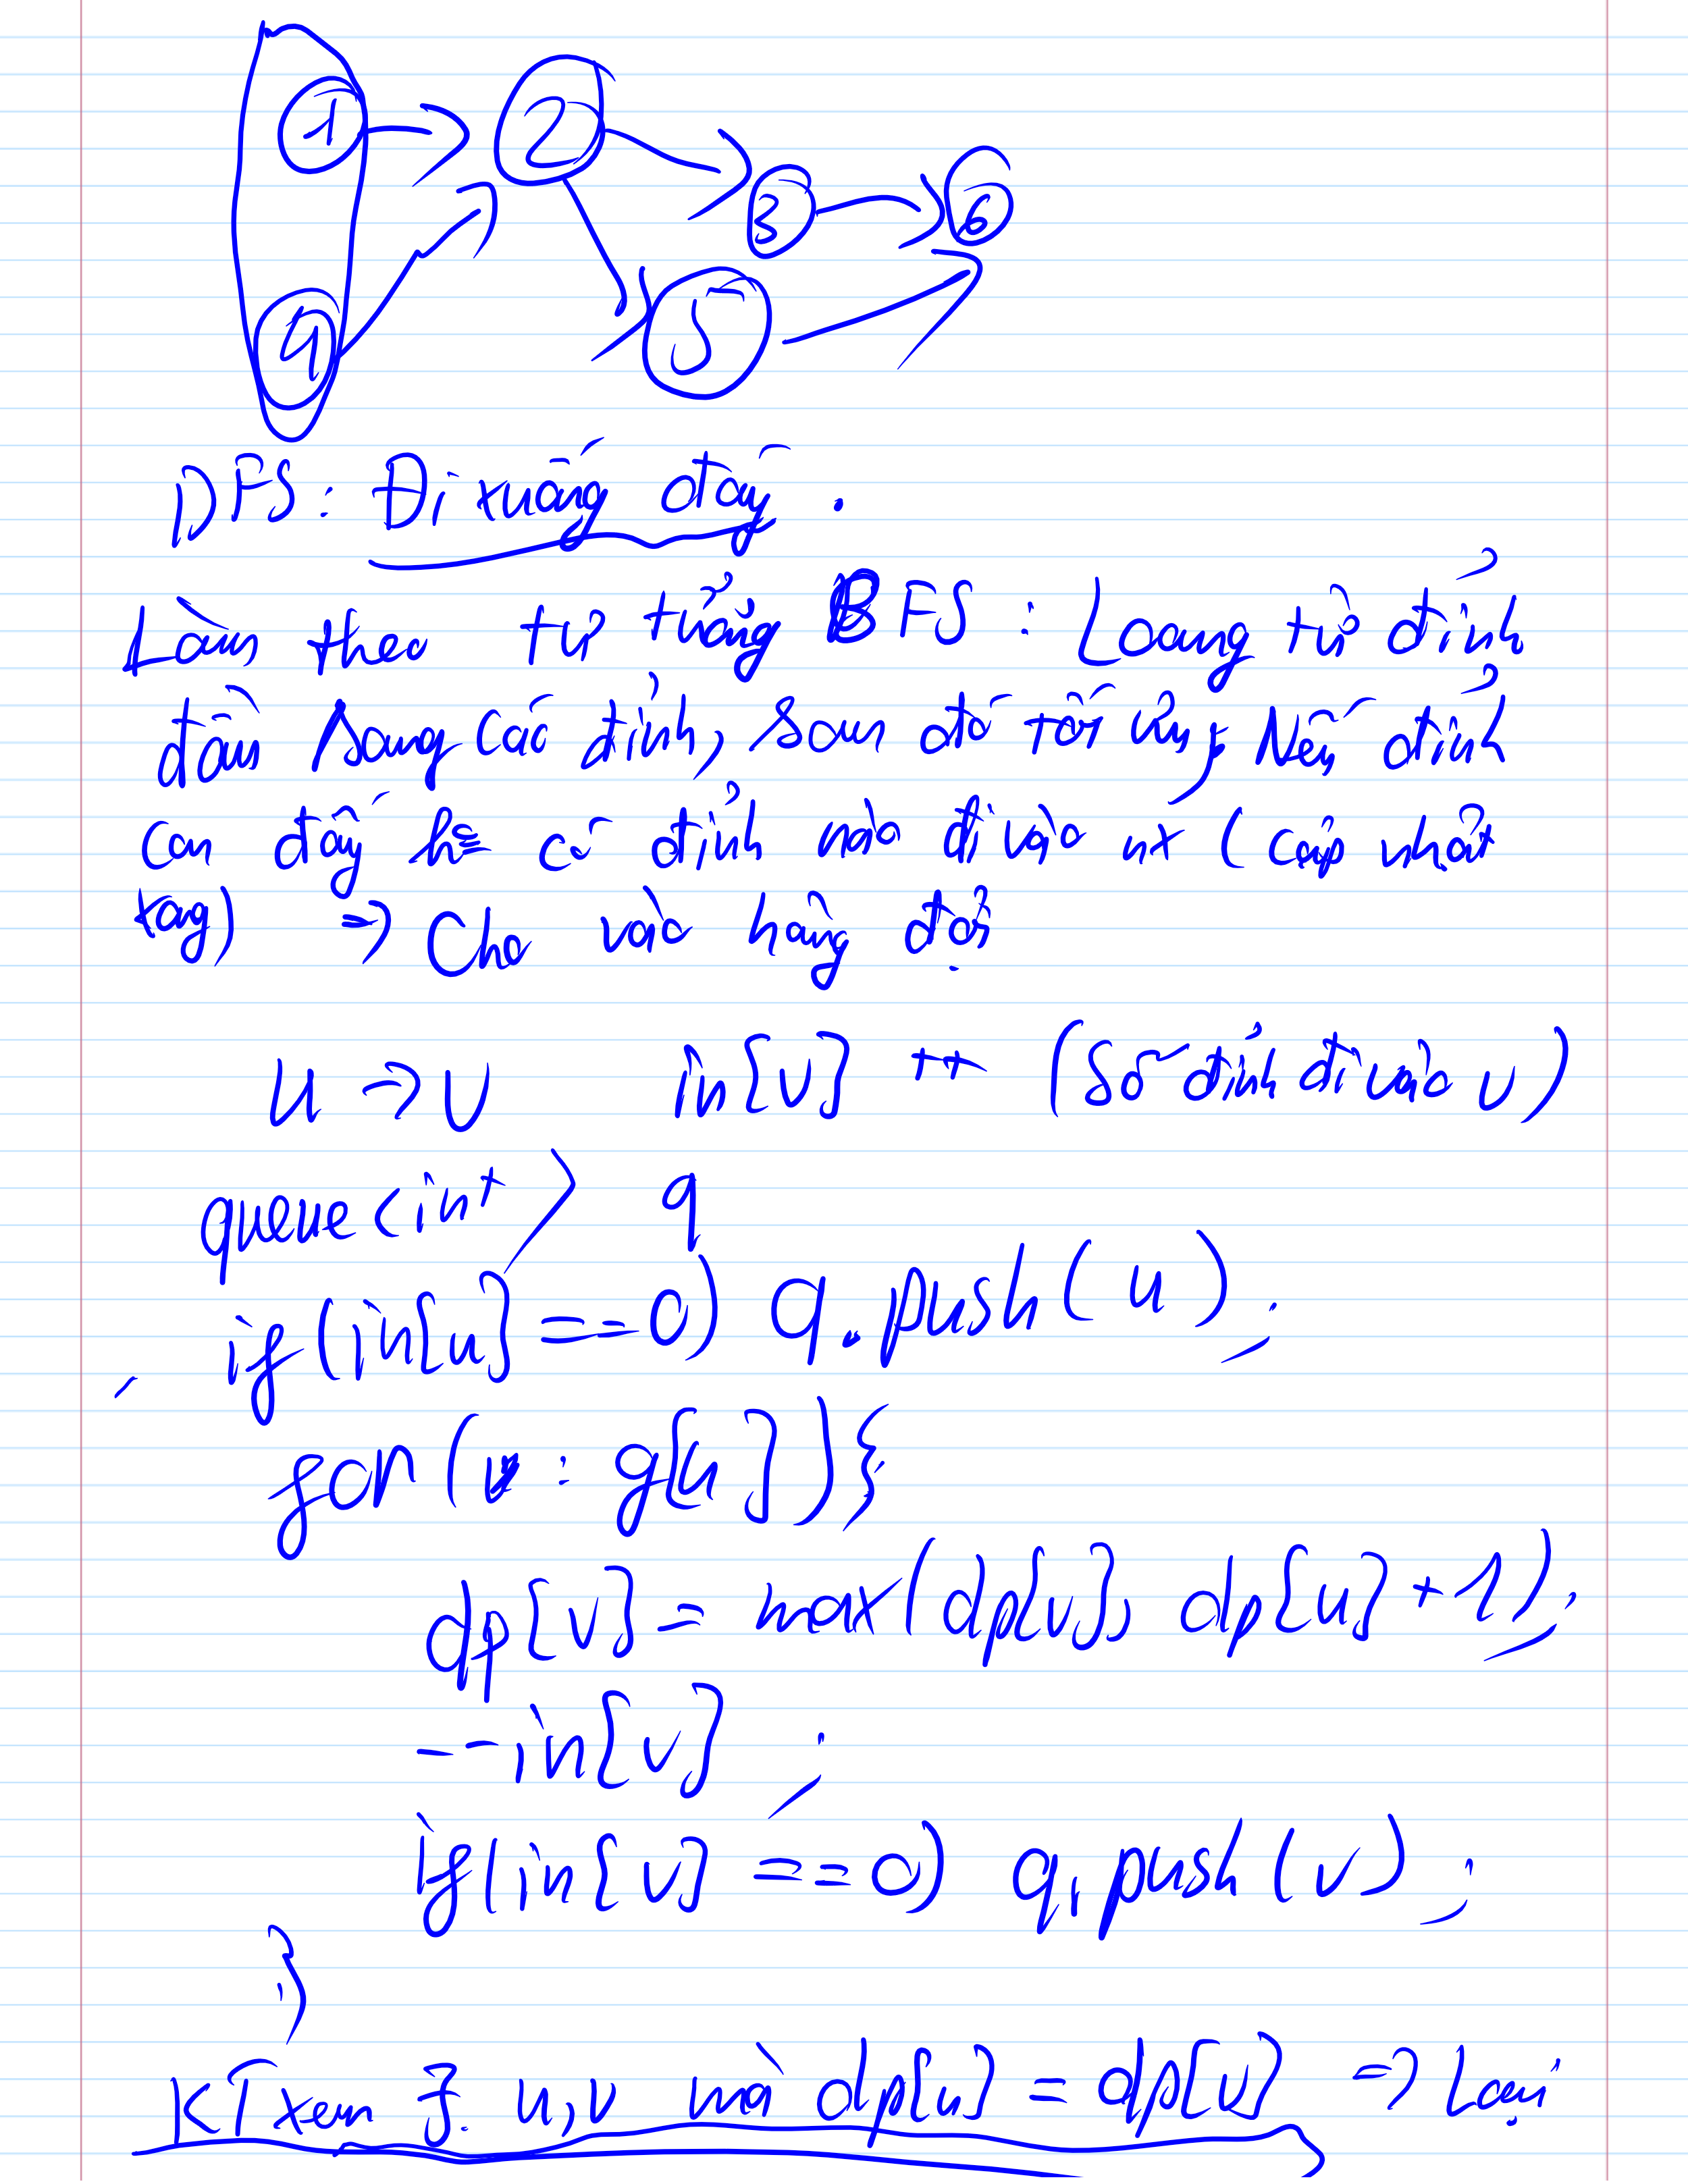 1 2 3 6
4 5
DFS: Đi xuống đáy.
Làm theo tư tưởng BFS: Loang từ đỉnh
đầu sang các đỉnh, sau đó tối ưu, Nếu đỉnh
con đấy k có đỉnh nào đi vào nx (cập nhật
xong) => Cho vào hàng đợi
u -> v in[v] ++ (số đỉnh đi vào v)
queue<int> q
- if(in[u] == 0) q.push(u);
for(v : g[u]){
dp[v] = max(dp[v], dp[u] + 1);
--in[v] ;
if(in[v] == 0) q.push(v);
}
KT xem ∃ u,v mà dp[u] = dp[v] => Loại